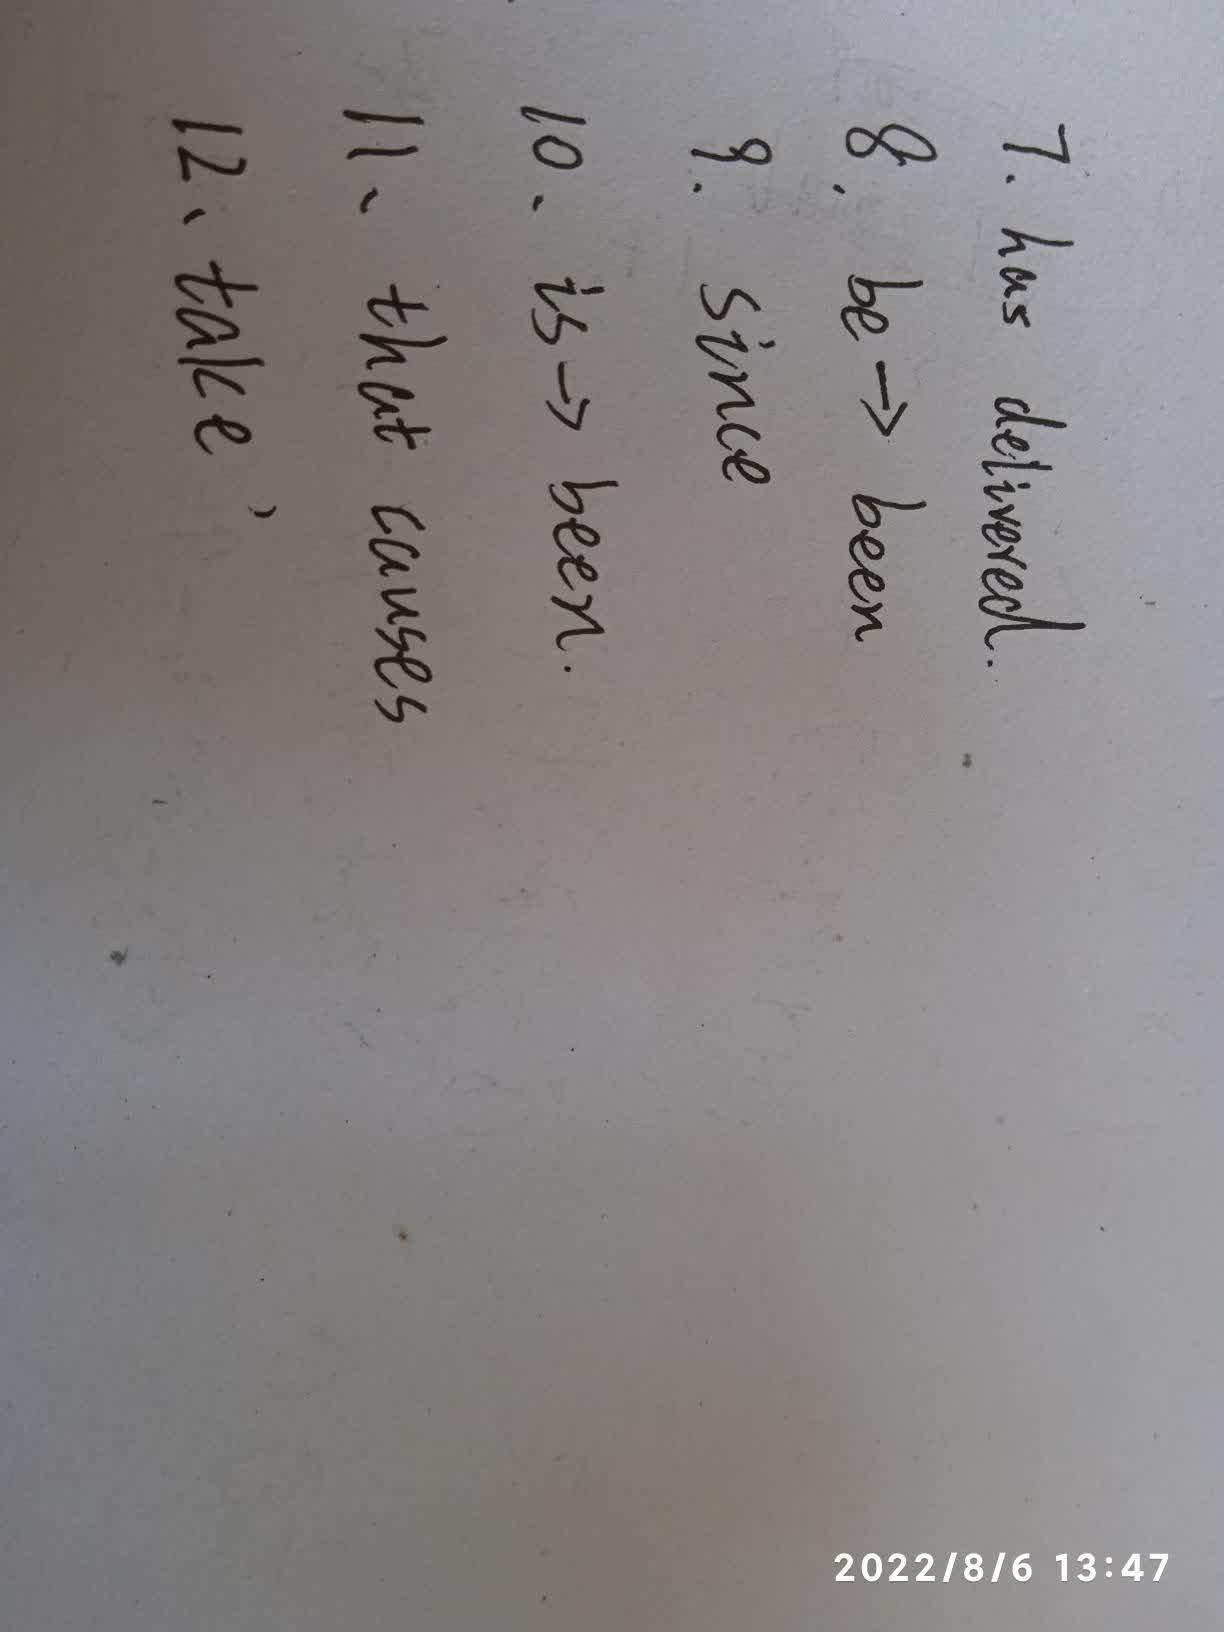 7. has delivered.
8. be → been
9. since
10. is → been.
11、that causes
12、take
2022/8/6 13:47